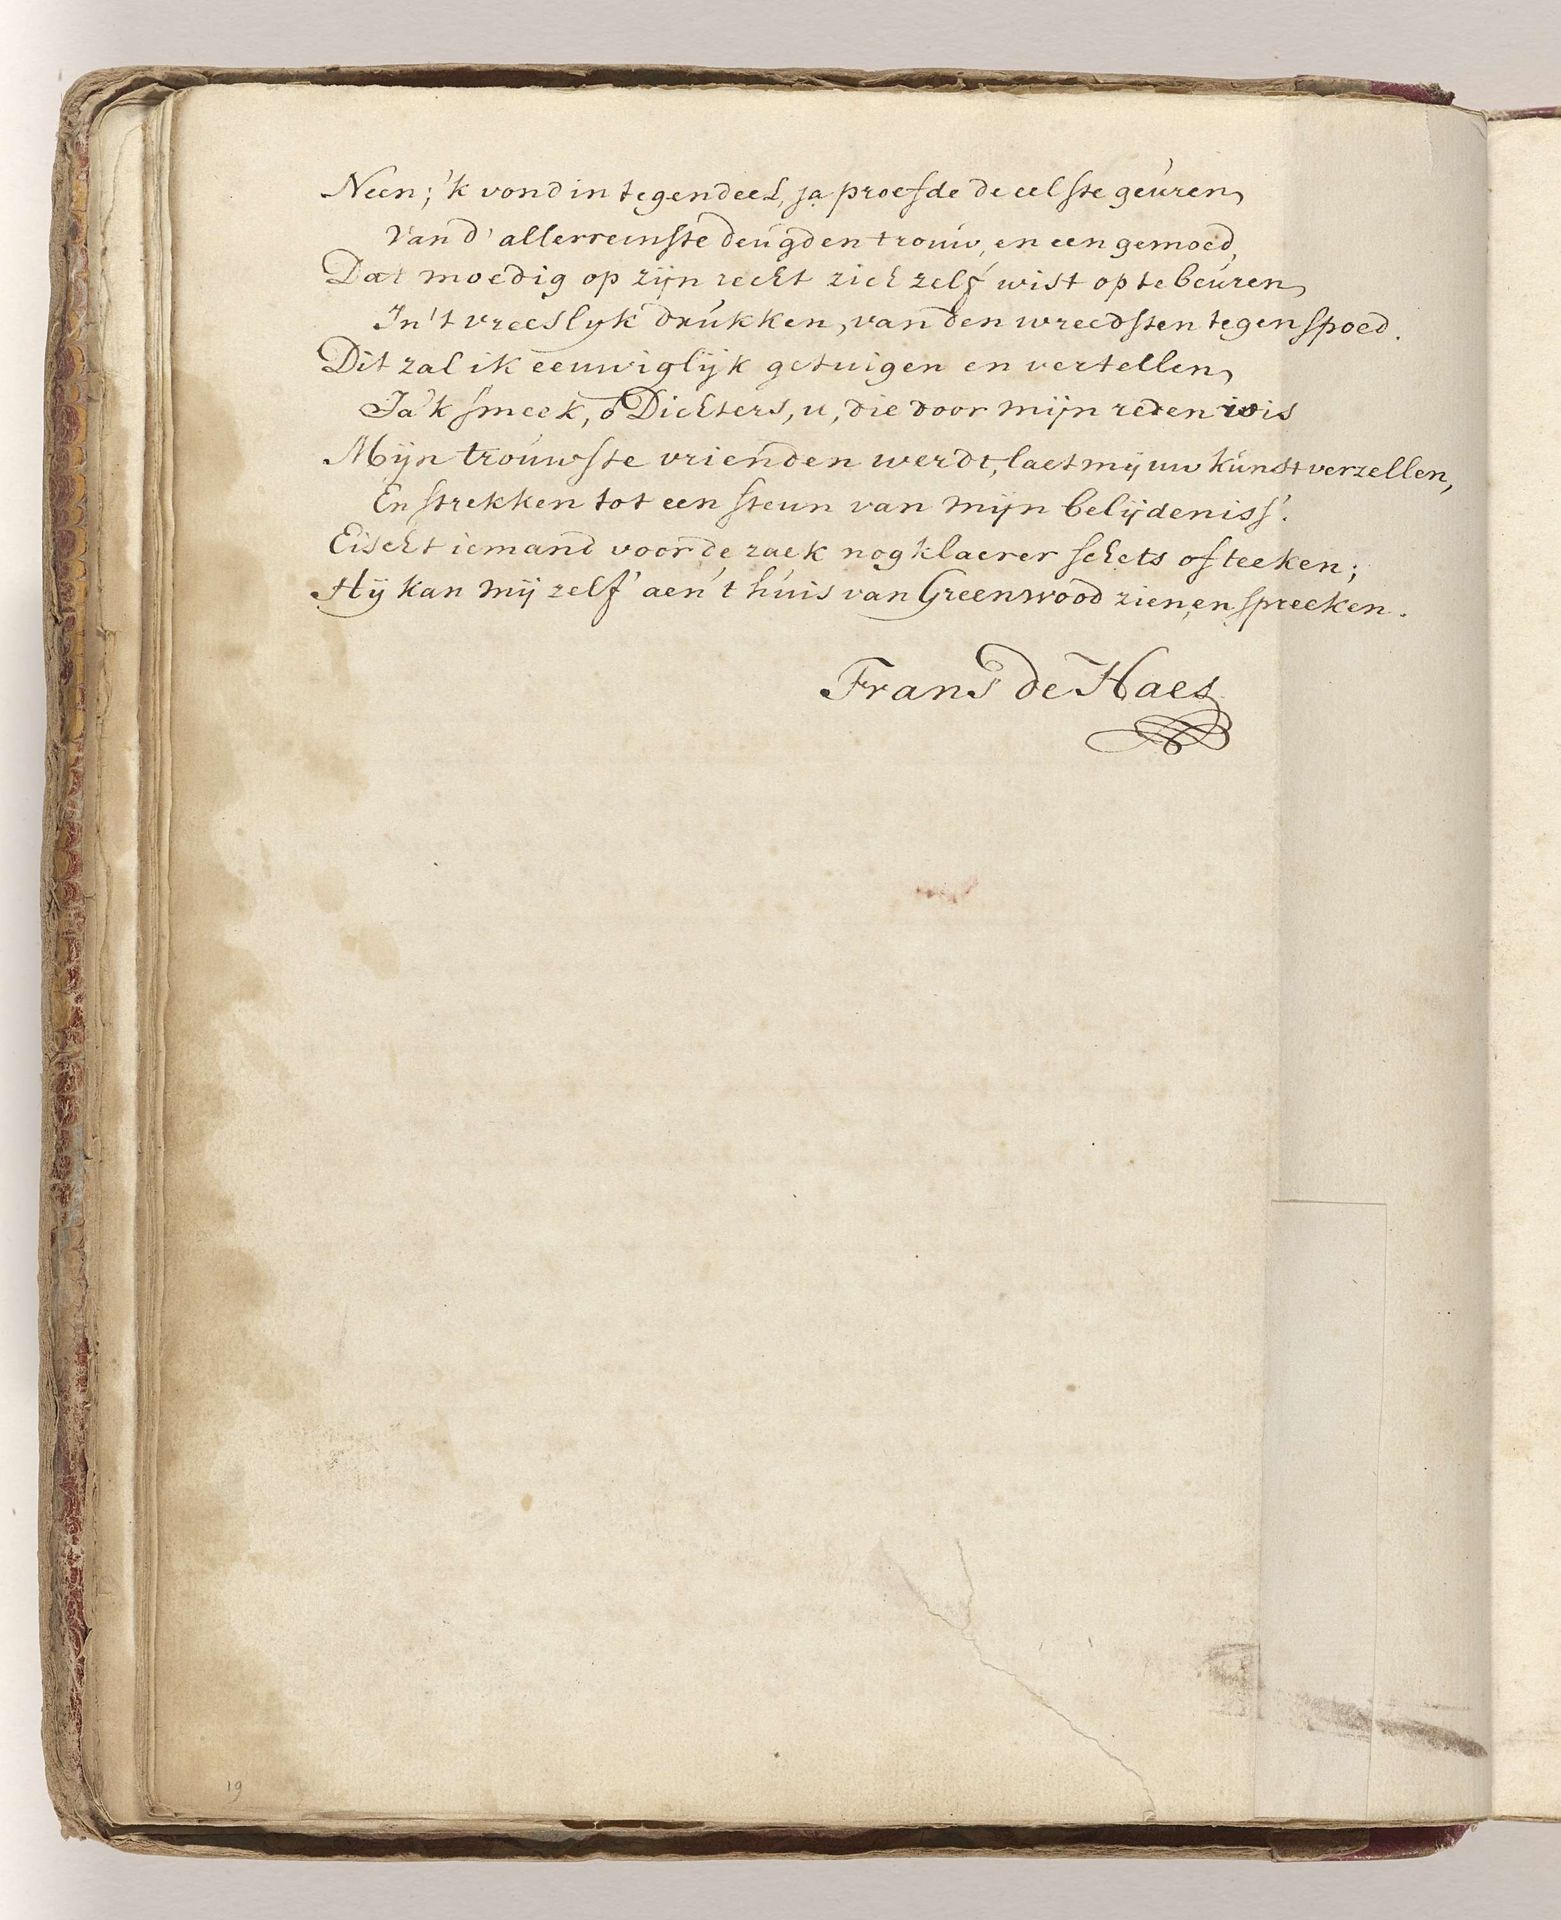 Neen; 'k vond in tegendeel, ja proefde de eelste geuren,
Van d' allerreinste deugden trouw, en een gemoed,
Dat moedig op zijn recht zich zelf wist op te beuren,
In 't vreeslyk drukken, van den wreedsten tegenspoed.
Dit zal ik eeuwiglijk getuigen en vertellen,
Ja 'k smeek, ô Dichters, u, die door mijn reden wis
Mijn trouwste vrienden werdt, laet mij uw kunst verzellen,
En strekken tot een steun van mijn belijdeniss'.
Eischt iemand voor de zaek nog klaerer schets of teeken;
Hij kan mij zelf' aen 't huis van Greenwood zien, en spreeken.
Frans de Haes
19